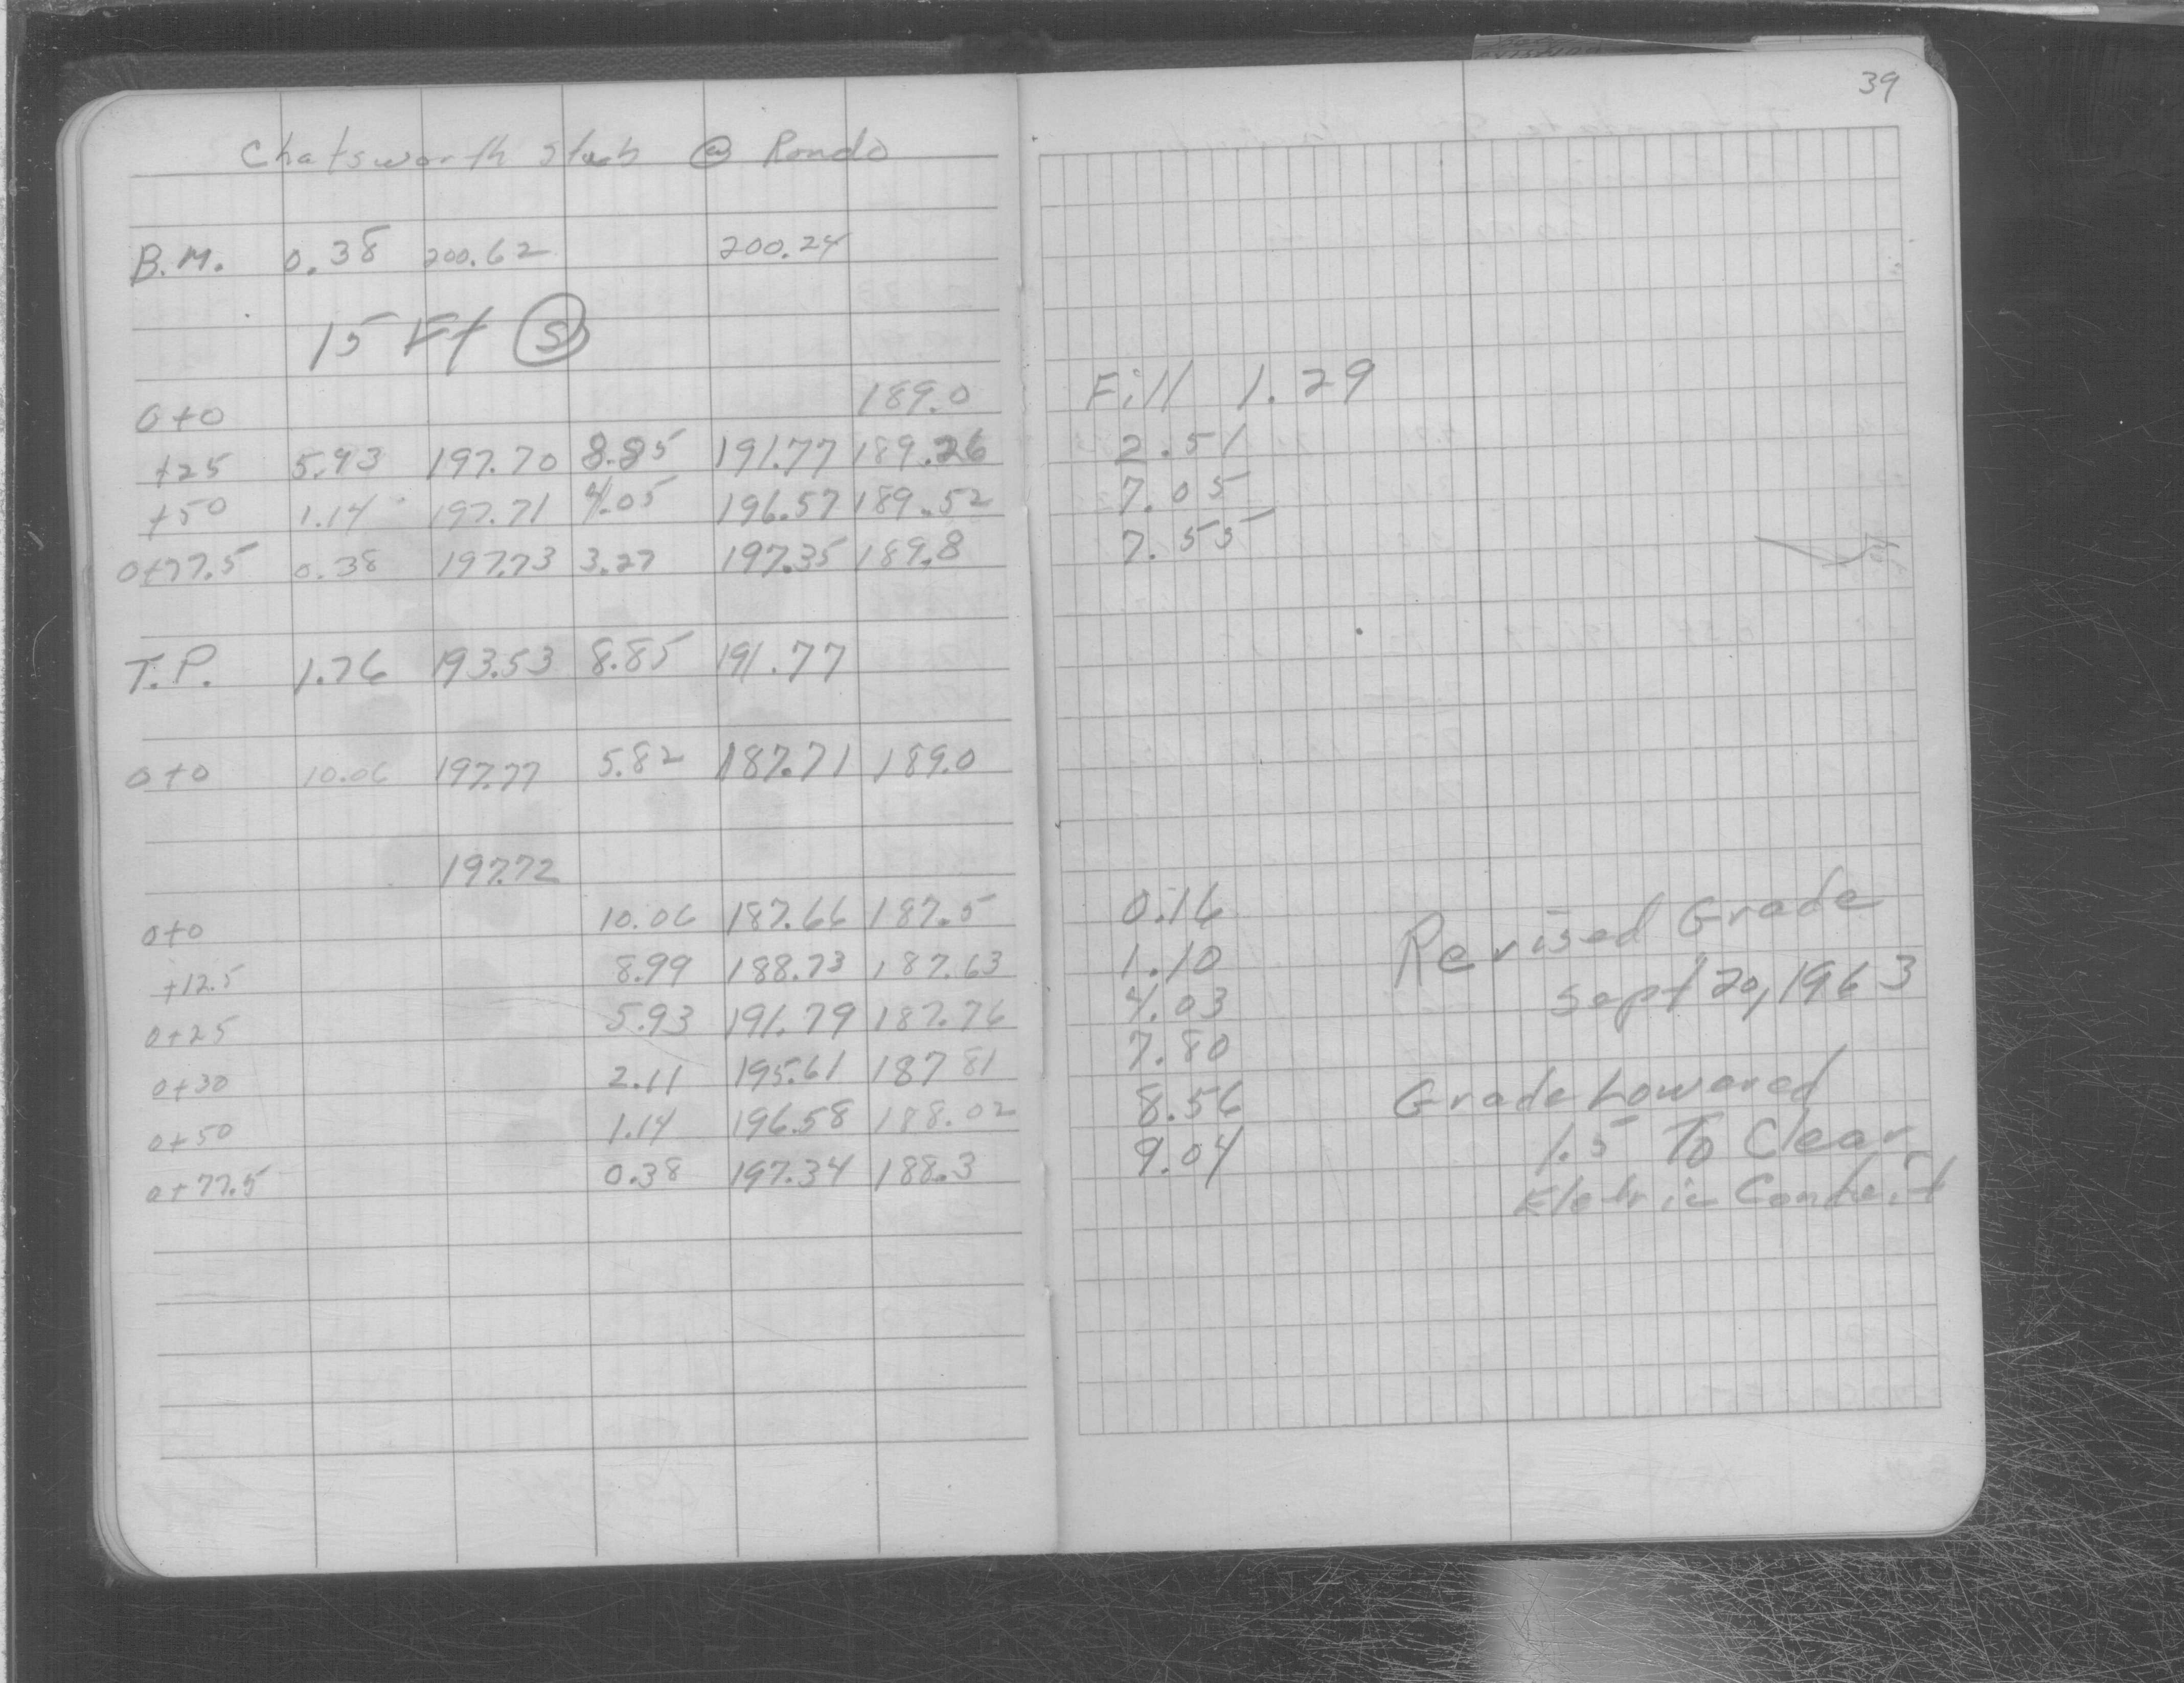 39
Chatsworth Stub @ Rondo
B.M. 0.38 200.62 200.24
15 Ft S
0+0 189.0 Fill 1.29
+25 5.93 197.70 8.85 191.77 189.26 2.51
+50 1.14 197.71 4.05 196.57 189.52 7.05
0+77.5 0.38 197.73 3.27 197.35 189.8 7.55
T.P. 1.76 193.53 8.85 191.77
0+0 10.06 197.77 5.82 187.71 189.0
197.72
0+0 10.06 187.66 187.5 0.16 Revised Grade
+12.5 8.99 188.73 187.63 1.10
0+25 5.93 191.79 187.76 4.03 Sept 20, 1963
0+30 2.11 195.61 187 81 7.80
0+50 1.14 196.58 188.02 8.56 Grade Lowered
0+77.5 0.38 197.34 188.3 9.04 1.5 To Clear
Eletric Conduit